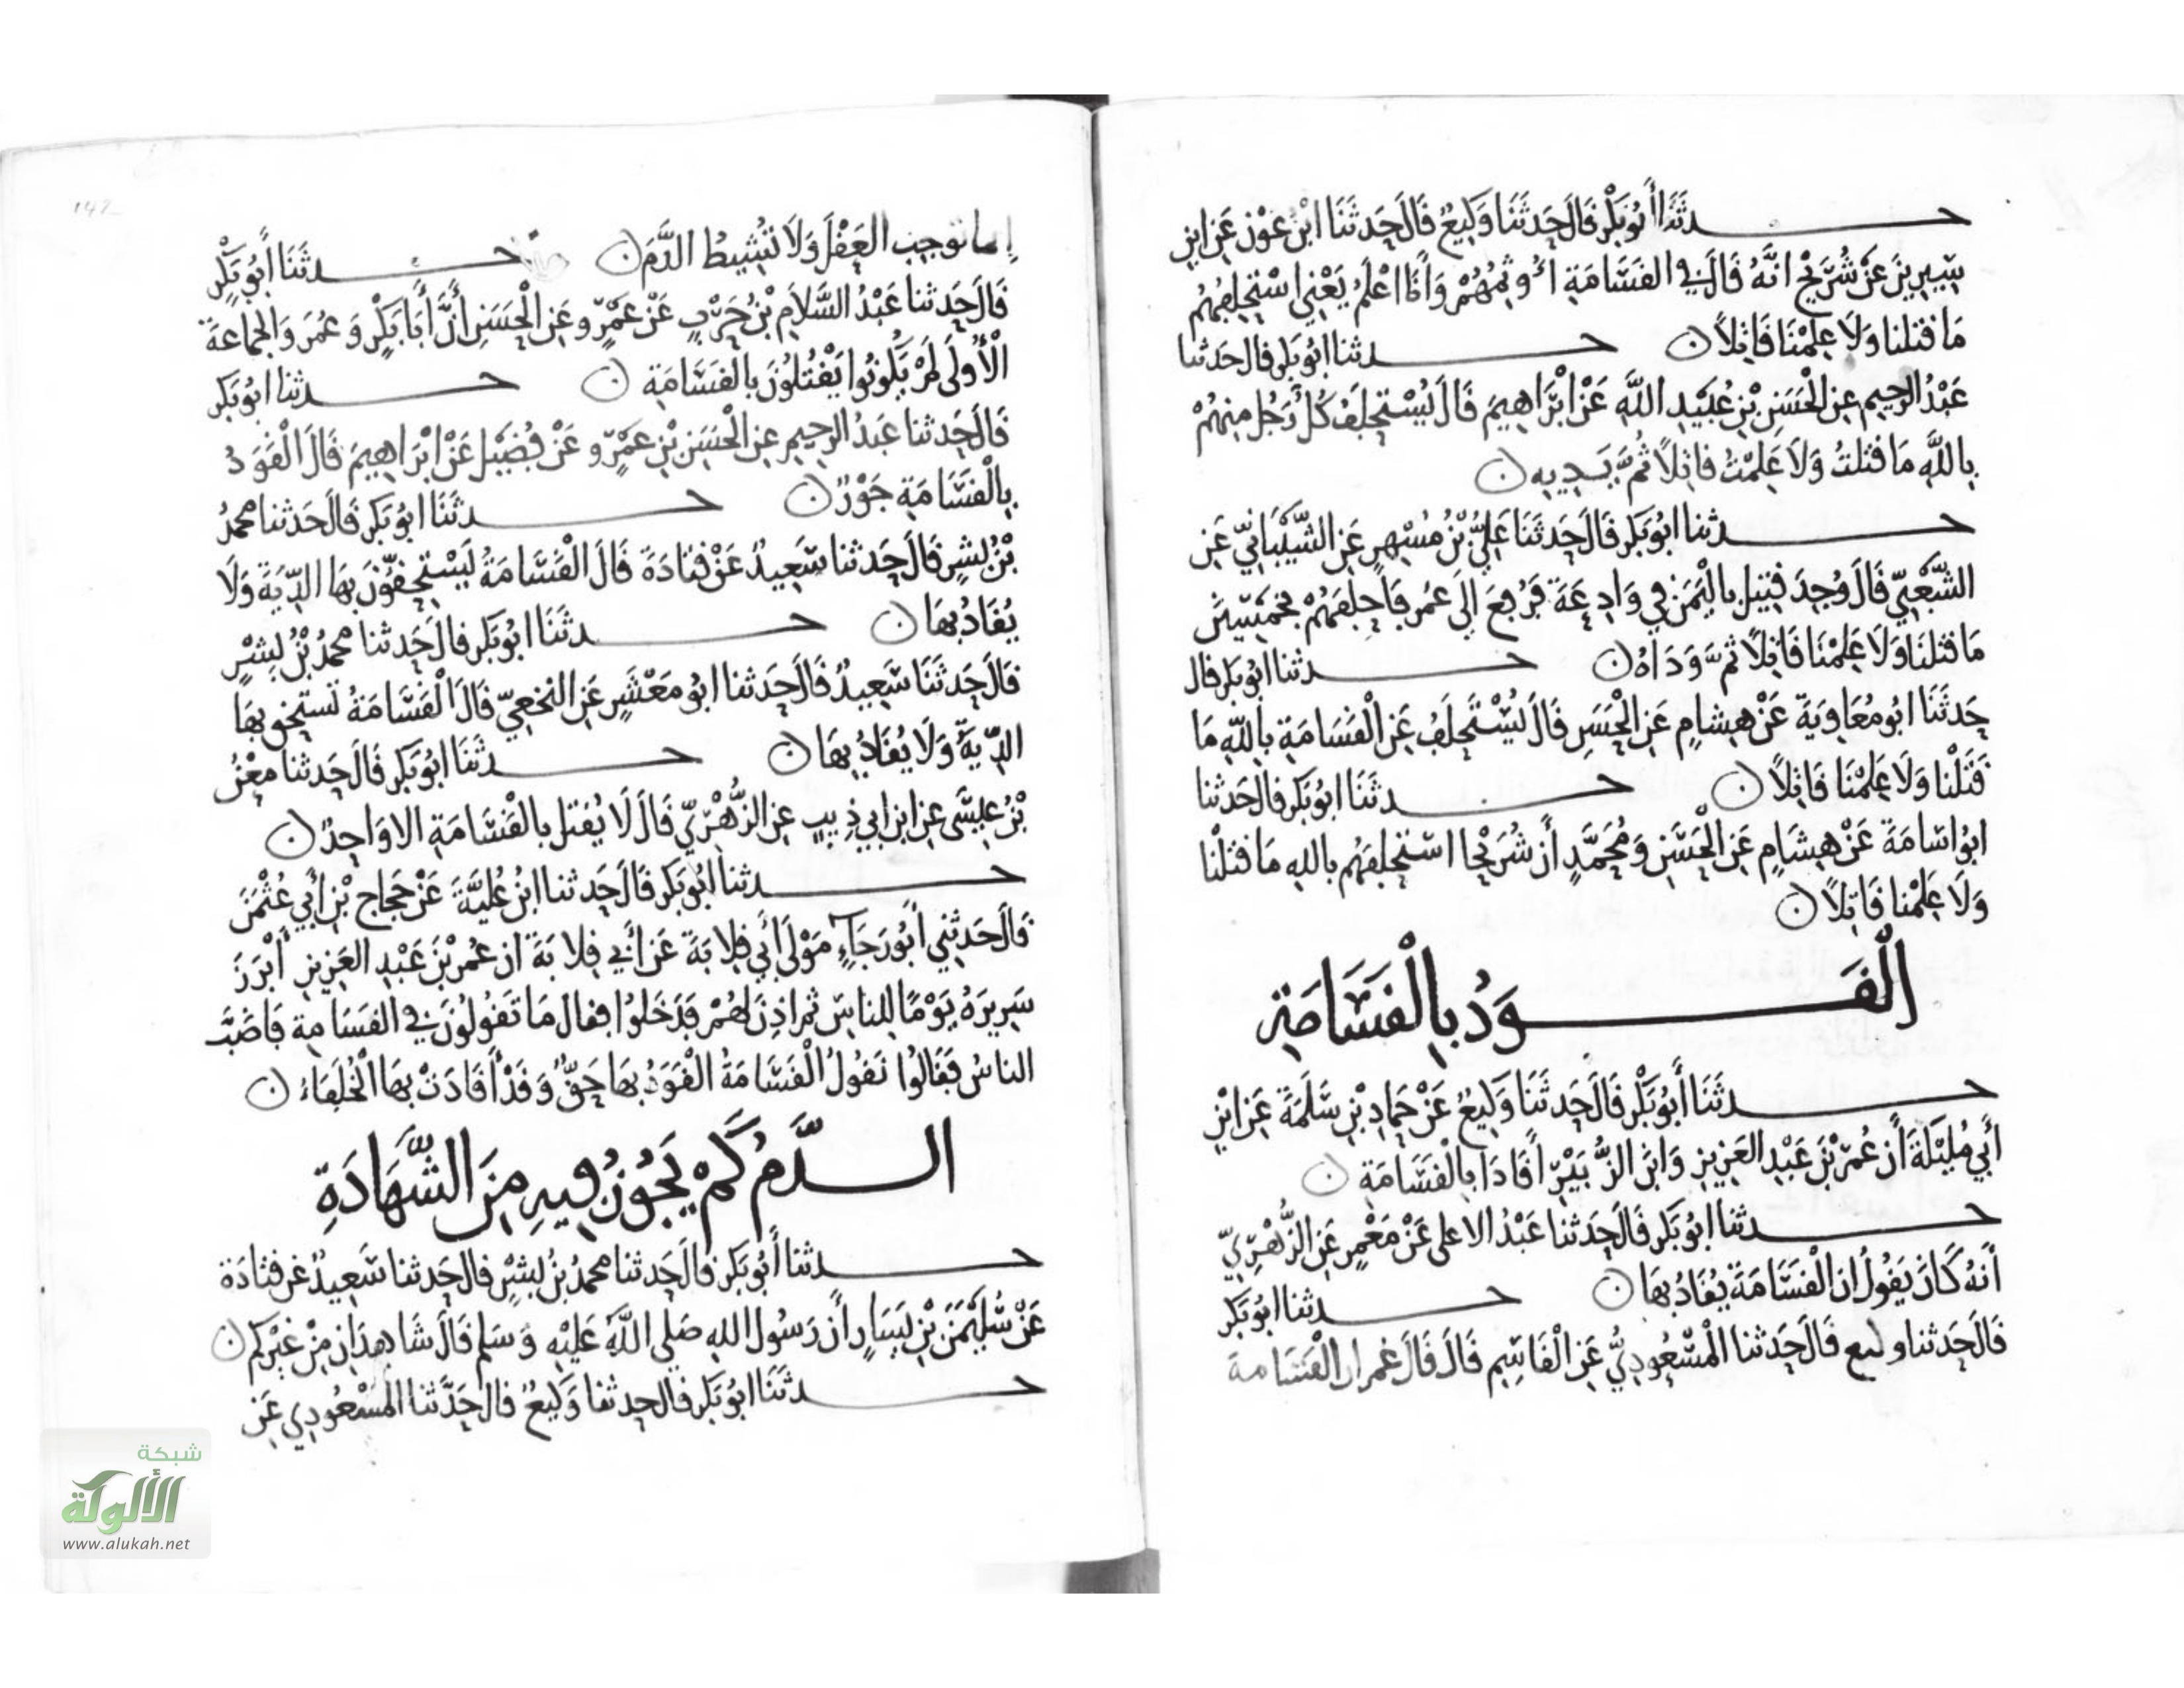 حـــدثَنَا أَبُو بَكْرٍ قَالَ حَدثَنَا وَكِيعٌ قَالَ حَدثَنَا ابْنُ عَوْنٍ عَنِ ابْنِ
سِيرِينَ عَنْ شُرَيْحٍ انَّهُ قَالَ فِي القَسَامَةِ أُوثِمُهُمْ وَأَنَا اعْلَمُ يَعْنِي اسْتَحْلِفُهُمْ
مَا قتلنا وَلَا عَلِمْنَا قَاتِلاً ن حـــدثنا ابُو بَكر قال حَدثنا
عَبْدُ الرحِيم عنِ الْحَسَنِ بْنِ عُبَيْدِ اللَّهِ عَنْ ابْرَاهِيمَ قَالَ يُسْتَحْلَفُ كُلُّ رَجُلٍ مِنهُمْ
بِاللَّهِ مَا قتلتُ وَلَا عَلِمْتُ قاتِلاً ثُمَّ يَدِيهِ ن
حـــدثنا ابُو بَكر قَالَ حَدثَنَا عَلِيُّ بْنُ مُسْهِرٍ عَنِ الشَّيْبَانِيِّ عَنِ
الشَّعْبِيِّ قَالَ وُجِدَ قَتِيل بِالْيَمَنِ فِي وَادِعَةَ فَرُفِعَ الَى عُمر فَأَحْلَفَهُمْ بِخَمْسِينَ
مَا قتلنَا وَلَا عَلِمْنَا قَاتِلًا ثمَّ وَدَاهُ ن حـــدثنا ابُو بَكر قال
حَدثَنَا ابُو مُعَاوِيَةَ عَنْ هِشَامٍ عَنِ الْحَسَنِ قَالَ يُسْتَحْلَفُ عَنِ الْقَسَامَةِ بِاللَّهِ مَا
قَتَلْنَا وَلَا عَلِمْنَا قَاتِلاً ن حـــدثَنَا ابُو بَكر قال حَدثنا
ابُو اسَامَةَ عَنْ هِشَامٍ عَنِ الْحَسَنِ وَمُحَمَّدٍ أَنَّ شُرَيْحًا اسْتَحْلَفَهُم بالله مَا قتلْنا
وَلَا عَلِمْنا قَاتِلاً ن
الْقَـــوَدُ بِالْقَسَامَةِ
حـــدثَنَا أَبُو بَكْرٍ قَالَ حَدثَنَا وَكِيعٌ عَنْ حَمادِ بْنِ سَلَمَةَ عَنِ ابْنِ
أَبِي مُلَيْكَةَ أَن عُمَرَ بْنَ عَبْدِ العَزِيزِ وَابْنَ الزُّبَيْرِ أَقَادَا بِالْقَسَامَةِ ن
حـــدثنا ابُو بَكر قَالَ حَدثنا عَبْدُ الاعلى عَنْ مَعْمَرٍ عَنِ الزُّهْرِيِّ
أَنهُ كَانَ يَقُولُ ان الْقَسَامَةَ يُقَادُ بهَا ن حـــدثنا ابُو بَكر
قَالَ حَدثنا وكيع قَالَ حَدثنا الْمَسْعُودِيُّ عَنِ الْقَاسِمِ قَالَ قَالَ عُمر ان الْقَسَامة
إنما توجب العَقْلَ وَلَا تُشِيطُ الدَّمَ ن حـــدثَنَا أَبُو بَكْرٍ
قَالَ حَدثنا عَبْدُ السَّلَامِ بْنُ حَرْبٍ عَنْ عَمْرٍو عَنِ الْحَسَنِ أَنَّ أَبَا بَكْرٍ وَعُمَرَ وَالجماعَةَ
الْأُولَى لَمْ يَكُونُوا يَقْتُلُونَ بِالقَسَامَةِ ن حـــدثنا ابُو بَكر
قَالَ حَدثنا عَبدُ الرحِيم عنِ الْحَسَنِ بْنِ عَمْرٍو عَنْ فُضَيْل عَنْ ابْرَاهِيمَ قَالَ الْقَوَدُ
بِالْقَسَامَةِ جَوْرٌ ن حـــدثَنَا ابُو بَكر قَالَ حَدثنا محمدُ
بْنُ بِشْرٍ قَالَ حَدثنا سَعِيدٌ عَنْ قتَادَةَ قَالَ الْقَسَامَةُ يَسْتَحِقُّونَ بِهَا الدِّيَةَ وَلَا
يُقَادُ بهَا ن حـــدثَنَا ابُو بَكر قال حَدثنا محمدُ بْنُ بِشْرٍ
قالَ حَدثَنَا سَعِيدٌ قَالَ حَدثنا ابُو مَعْشَرٍ عَنِ النخَعِيِّ قَالَ الْقَسَامَةُ تستَحق بهَا
الدِّيَةُ وَلَا يُقَادُ بِهَا ن حـــدثَنَا ابُو بَكر قَالَ حَدثنا مَعْنُ
بْنُ عِيسَى عنِ ابن ابي ذِيبٍ عنِ الزُّهْرِيِّ قَالَ لَا يُقتل بالْقَسَامَةِ الا وَاحِدٌ ن
حـــدثنا ابُو بَكر قَالَ حَدثنا ابْنُ عُلَيَّةَ عَنْ حَجاج بْنِ أَبِي عُثْمَنَ
قَالَ حَدثنِي أَبُو رَجَآءٍ مَوْلَى أَبِي قِلَابَةَ عَنْ أَبِي قِلَابَةَ ان عُمَرَ بْنَ عَبْدِ العَزِيزِ أَبْرَزَ
سَرِيرَهُ يَوْمًا لِلناسِ ثم اذِنَ لَهُمْ فَدَخَلُوا فقال مَا تَقُولُونَ فِي القَسَامةِ فَأَضَبَّ
الناسُ فَقَالُوا نَقُولُ الْقَسَامَةُ الْقَوَدُ بهَا حَقٌّ وَقَدْ أَقَادَتْ بهَا الْخُلَفَاءُ ن
الـــدَّمُ كَمْ يَجُوزُ فِيهِ مِنَ الشَّهَادَةِ
حـــدثنا أَبُو بَكر قالَ حَدثنا محمدُ بْنُ بِشْرٍ قال حَدثنا سَعِيدٌ عَن قتادَةَ
عَنْ سُلَيْمَنَ بْنِ يَسَارٍ أَن رَسُولَ اللهِ صَلى اللَّهُ عَلَيْهِ وَسَلم قَالَ شَاهِدَانِ مِنْ غَيْرِكم ن
حـــدثَنَا ابُو بَكر قال حدثنا وَكِيعٌ قال حَدَّثنا المَسْعُودِي عَنِ
شبكة
الألوكة
www.alukah.net